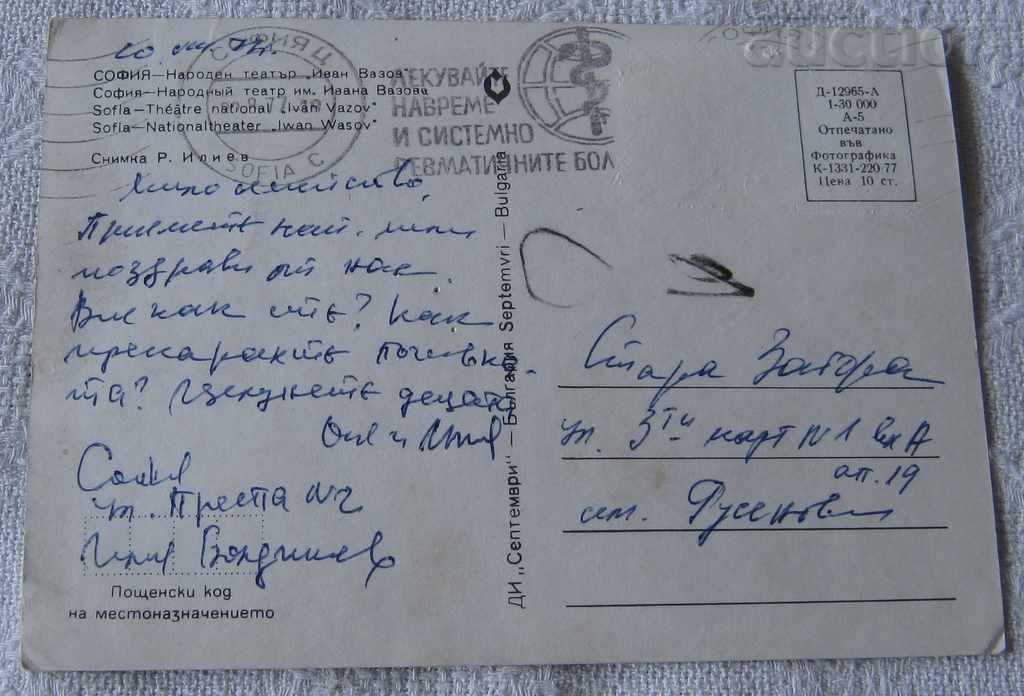 СОФИЯ — Народен театър „Иван Вазов“
София — Народный театр им. Ивана Вазова
Sofia — Théâtre national „Ivan Vazov“
Sofia — Nationaltheater „Iwan Wasow“
Снимка Р. Илиев
СОФИЯ Ц
SOFIA C
ЛЕКУВАЙТЕ
НАВРЕМЕ
И СИСТЕМНО
РЕВМАТИЧНИТЕ БОЛ
auction
Д-12965-А
1-30 000
А-5
Отпечатано
във
Фотографика
К-1331-220-77
Цена 10 ст.
Мило семейство,
Приемете най-мили
поздрави от нас.
Вие как сте? Как
прекарахте почивка-
та? Целунете децата
Оля и Илия
София
ул. Преспа №2
Илия
Пощенски код
на местоназначението
ДИ „Септември“ — България Septemvri — Bulgaria
Стара Загора
ул. 3ти март №1 вх А
ап. 19
сем. Русенови